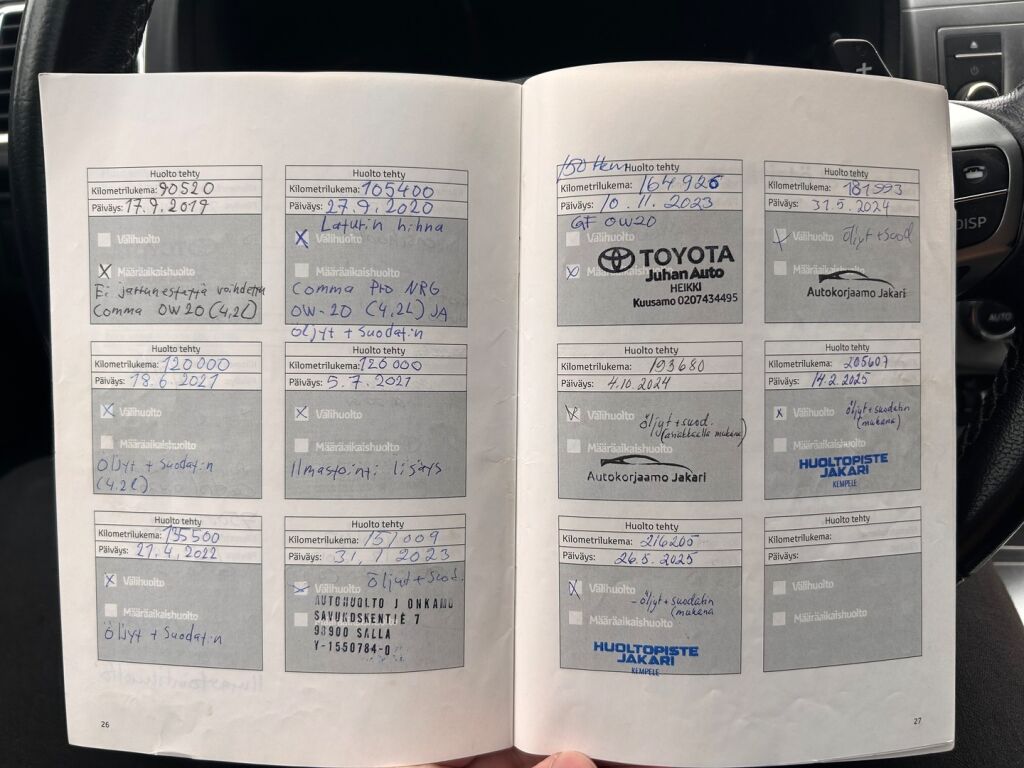 Huolto tehty
Kilometrilukema: 90520
Päiväys: 17.9.2019
Välihuolto
X Määräaikaishuolto
Ei jarrunestettä vaihdettu
Comma 0W20 (4,2L)
Huolto tehty
Kilometrilukema: 105400
Päiväys: 27.9.2020
Laturin hihna
X Välihuolto
Määräaikaishuolto
Comma Pro NRG
0W-20 (4,2L) JA
öljyt + suodatin
Huolto tehty
Kilometrilukema: 120000
Päiväys: 18.6.2021
X Välihuolto
Määräaikaishuolto
öljyt + suodatin
(4.2l)
Huolto tehty
Kilometrilukema: 120000
Päiväys: 5.7.2021
X Välihuolto
Määräaikaishuolto
Ilmastointi lisäys
Huolto tehty
Kilometrilukema: 135500
Päiväys: 27.4.2022
X Välihuolto
Määräaikaishuolto
öljyt + suodatin
Huolto tehty
Kilometrilukema: 157009
Päiväys: 31.1.2023
öljyt + suod.
Välihuolto
AUTOHUOLTO J ONKAMO
SAVUKOSKENTIE 7
98900 SALLA
Y-1550784-0
26
150 tkm Huolto tehty
Kilometrilukema: 164926
Päiväys: 10.11.2023
GF 0W20
Välihuolto
X Määräaikaishuolto
TOYOTA
Juhan Auto
HEIKKI
Kuusamo 0207434495
Huolto tehty
Kilometrilukema: 181993
Päiväys: 31.5.2024
X Välihuolto öljyt + suod
Määräaikaishuolto
Autokorjaamo Jakari
Huolto tehty
Kilometrilukema: 193680
Päiväys: 4.10.2024
X Välihuolto
öljyt + suod.
(asiakkaalta mukana)
Autokorjaamo Jakari
Huolto tehty
Kilometrilukema: 205607
Päiväys: 14.2.2025
X Välihuolto öljyt + suodatin
(mukana)
Määräaikaishuolto
HUOLTOPISTE
JAKARI
KEMPELE
Huolto tehty
Kilometrilukema: 216205
Päiväys: 26.8.2025
X Välihuolto
- öljyt + suodatin
(mukana
Määräaikaishuolto
HUOLTOPISTE
JAKARI
KEMPELE
Huolto tehty
Kilometrilukema:
Päiväys:
Välihuolto
Määräaikaishuolto
27
DISP
AUTO